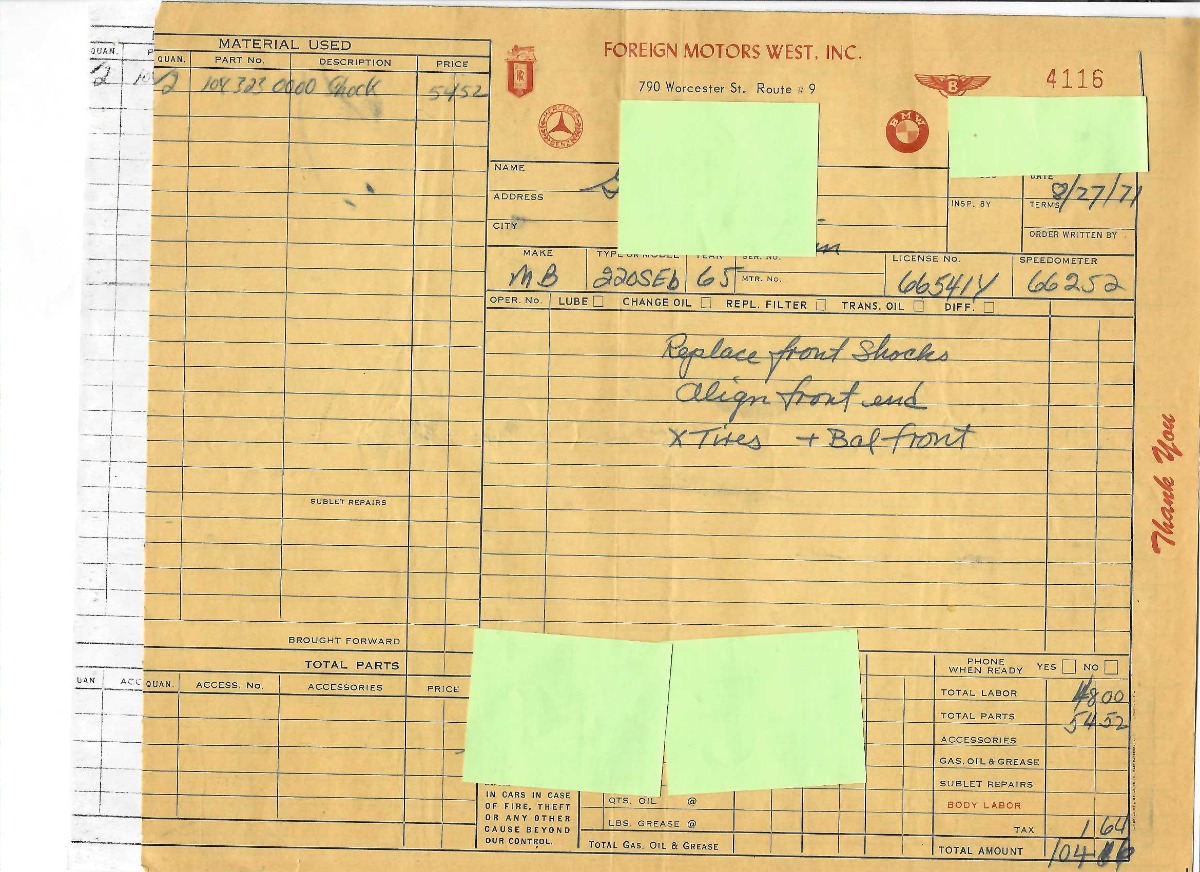 MATERIAL USED
QUAN. PART NO. DESCRIPTION PRICE
2 109 323 0000 Shock 54 52
SUBLET REPAIRS
BROUGHT FORWARD
TOTAL PARTS
QUAN. ACCESS. NO. ACCESSORIES PRICE
QUAN.
2
UAN ACC
FOREIGN MOTORS WEST, INC.
790 Worcester St. Route # 9
4116
RR
MERCEDES
BENZ
B
BMW
NAME
ADDRESS
CITY
DATE 8/27/71
INSP. BY
TERMS
ORDER WRITTEN BY
MAKE TYPE OR MODEL YEAR SER. NO. LICENSE NO. SPEEDOMETER
MB 220SEb 65 MTR. NO. 66541Y 66252
OPER. NO. LUBE CHANGE OIL REPL. FILTER TRANS. OIL DIFF.
Replace front Shocks
Align front end
X Tires + Bal front
Thank You
PHONE WHEN READY YES NO
TOTAL LABOR 48 00
TOTAL PARTS 54 52
ACCESSORIES
GAS, OIL & GREASE
SUBLET REPAIRS
BODY LABOR
TAX 1 64
TOTAL AMOUNT 104
IN CARS IN CASE
OF FIRE, THEFT
OR ANY OTHER
CAUSE BEYOND
OUR CONTROL.
QTS. OIL @
LBS. GREASE @
TOTAL GAS, OIL & GREASE